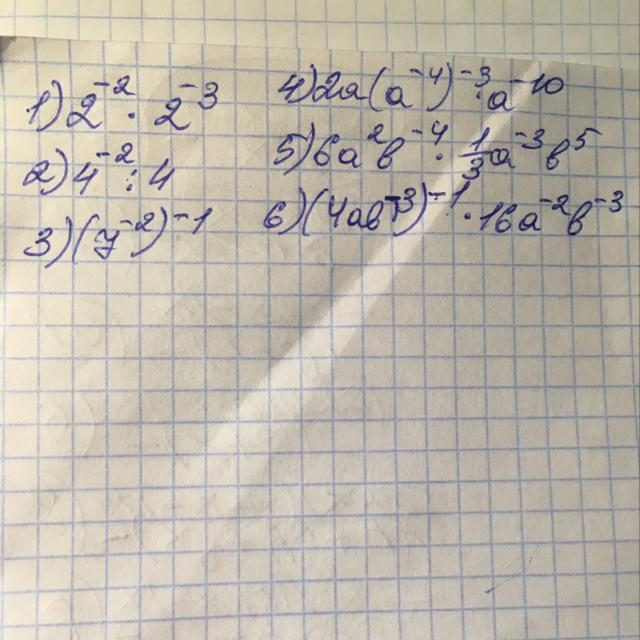 1) 2⁻² · 2⁻³
2) 4⁻² : 4
3) (7⁻²)⁻¹
4) 2a(a⁻⁴)⁻³ · a⁻¹⁰
5) 6a²b⁻⁴ · 1/3 a⁻³b⁵
6) (4ab⁻³)⁻¹ · 16a⁻²b⁻³